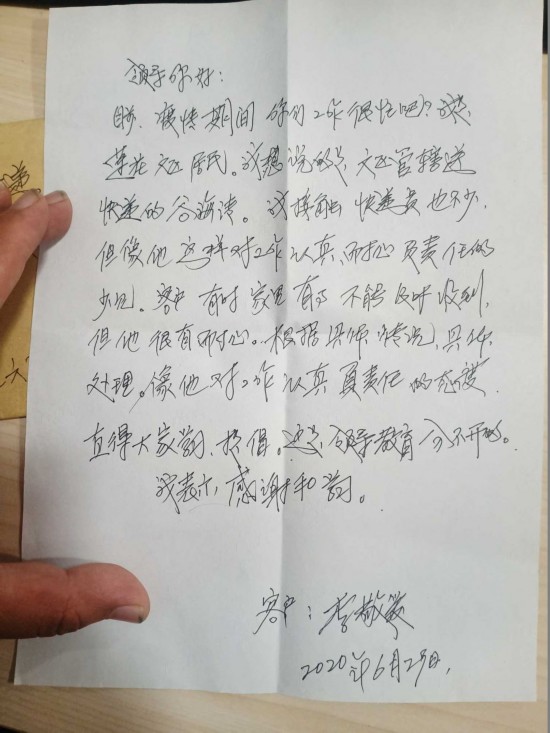 领导你好：
疫情期间你们工作很忙吧？我是
莲花 居民。我想说的是, 管辖送
快递的谷海涛。我接触快递员也不少,
但像他这样对工作认真、耐心负责任的
少见。客户有时家里有事不能及时收到,
但他很有耐心。根据具体情况,具体
处理。像他对工作认真负责任的态度
直得大家学习、提倡。这是领导教育分不开的。
我表示感谢和学习。
客户：李敬
2020年6月29日.
递